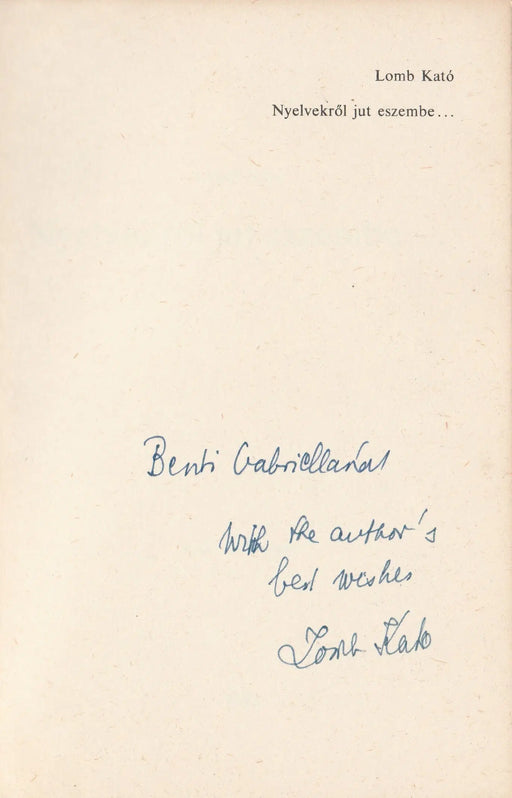 Lomb Kató
Nyelvekről jut eszembe...
Benti Gabriellának
With the author's
best wishes
Lomb Kató